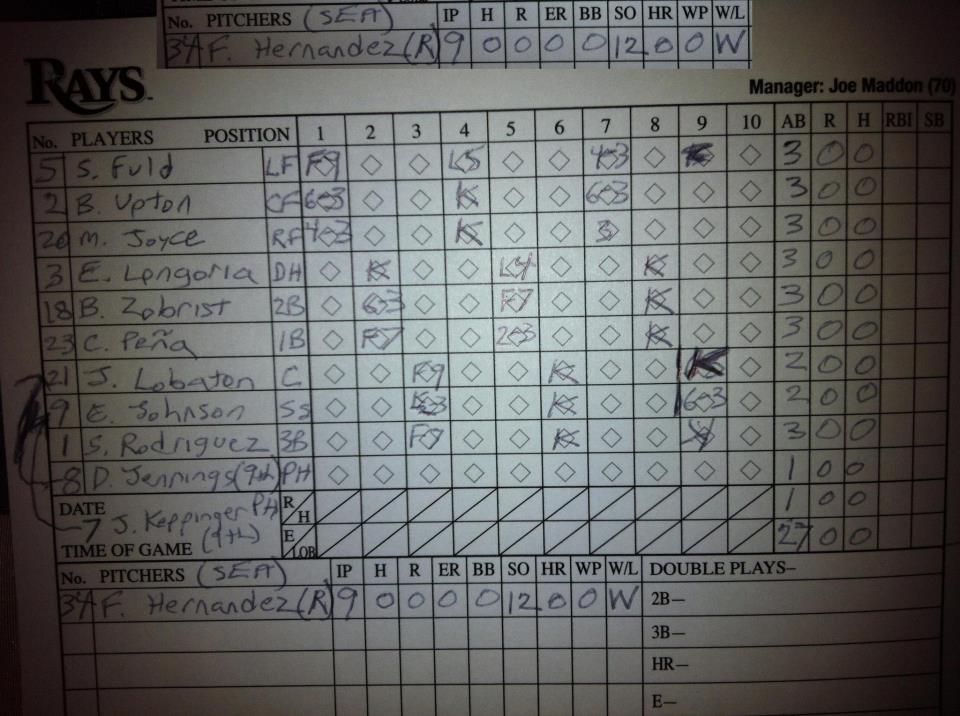 No. PITCHERS (SEA) IP H R ER BB SO HR WP W/L
34 F. Hernandez (R) 9 0 0 0 0 12 0 0 W
RAYS
Manager: Joe Maddon (70)
No. PLAYERS POSITION 1 2 3 4 5 6 7 8 9 10 AB R H RBI SB
5 S. Fuld LF F9 L5 4-3 K 3 0 0
2 B. Upton CF 6-3 K 6-3 3 0 0
20 M. Joyce RF 4-3 K 3 3 0 0
3 E. Longoria DH K L4 K 3 0 0
18 B. Zobrist 2B 6-3 F7 K 3 0 0
23 C. Peña 1B F7 2-3 K 3 0 0
21 J. Lobaton C F9 K K 2 0 0
9 E. Johnson SS K 6-3 2 0 0
1 S. Rodriguez 3B F7 K K 3 0 0
8 D. Jennings (9th) PH 1 0 0
DATE R H
7 J. Keppinger PH 1 0 0
TIME OF GAME (9th) E LOB 27 0 0
No. PITCHERS (SEA) IP H R ER BB SO HR WP W/L DOUBLE PLAYS–
34 F. Hernandez (R) 9 0 0 0 0 12 0 0 W 2B–
3B–
HR–
E–